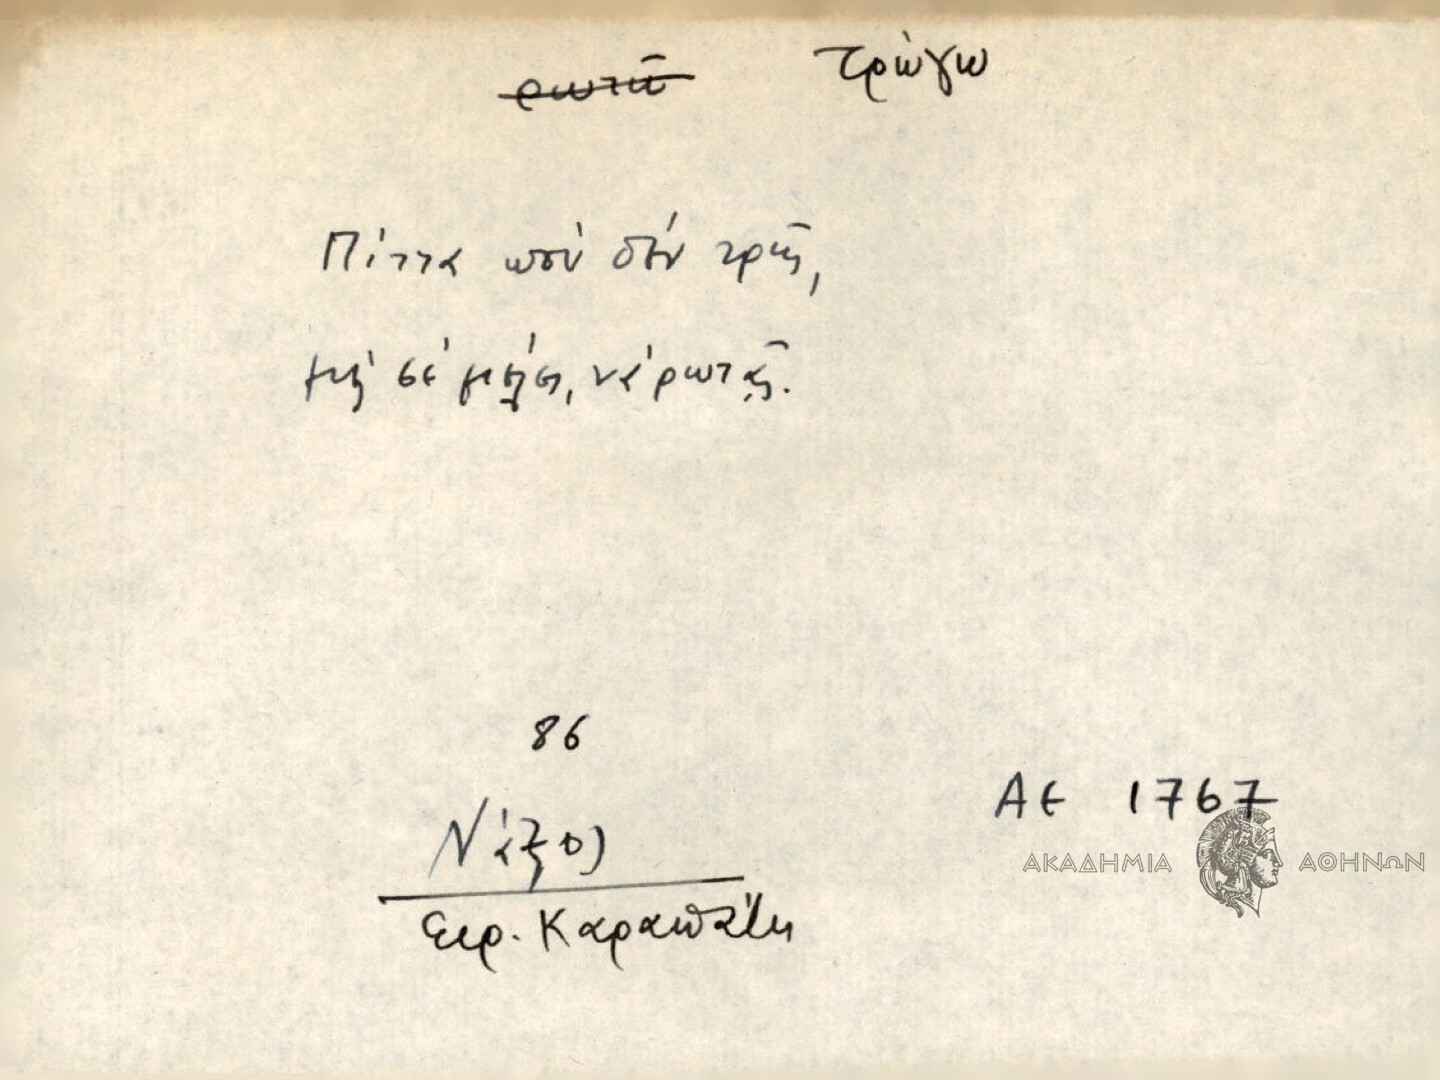 ρωτῶ τρώγω
Πίττα ποὺ δὲν τρῶς,
μὴ σὲ μέλῃ, νὰ ρωτᾷς.
86
Νάξος
Ειρ. Καραπάτη
ΑΕ 1767
ΑΚΑΔΗΜΙΑ ΑΘΗΝΩΝ